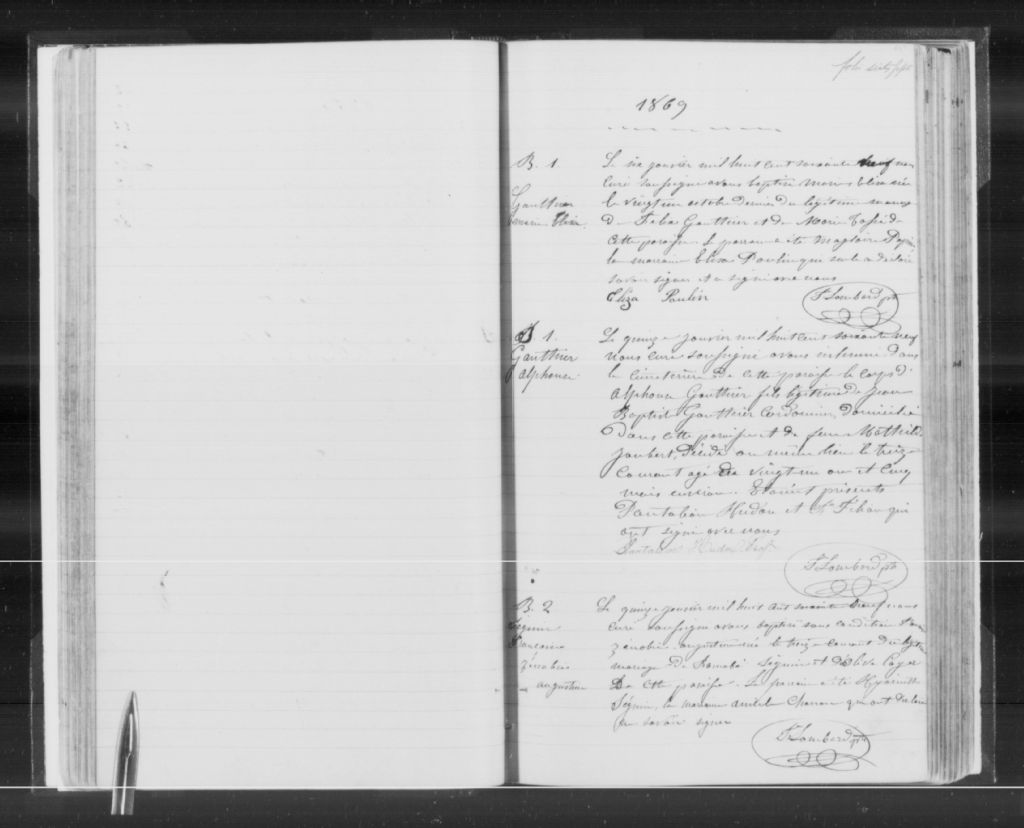 folio
1869
B. 1.
Gauthier
marie Eliza
Le six janvier mil huit cent soixante neuf nous
curé soussigné avons baptisé Marie Eliza née
le vingt un octobre dernier du légitime mariage
de Gauthier et de Marie de
cette paroisse. Le parrain a été
la marraine Elisa Paulin qui seule a déclaré
savoir signer et a signé avec nous
Eliza Paulin
F. Lombard ptre
S 1.
Gauthier
Alphonse
Le quinze janvier mil huit cent soixante neuf
nous curé soussigné avons inhumé dans
le cimetière de cette paroisse le corps d'
Alphonse Gauthier fils légitime de Jean
Baptiste Gauthier Cordonnier, domicilié
dans cette paroisse et de feue Mathilde
Joubert, décédé au même lieu le treize
courant agé de vingt un ans et cinq
mois environ. Etaient présents
Pantaléon Hudon et qui
ont signé avec nous
Pantaléon Hudon
F. Lombard ptre
B. 2
Séguin
zénobie
augustine
Le quinze janvier mil huit cent soixante neuf nous
curé soussigné avons baptisé sous condition
zénobie augustine née le treize courant du légitime
mariage de Séguin et
de cette paroisse. Le parrain a été Hyacinthe
Séguin, la marraine qui ont déclaré
ne savoir signer
F. Lombard ptre